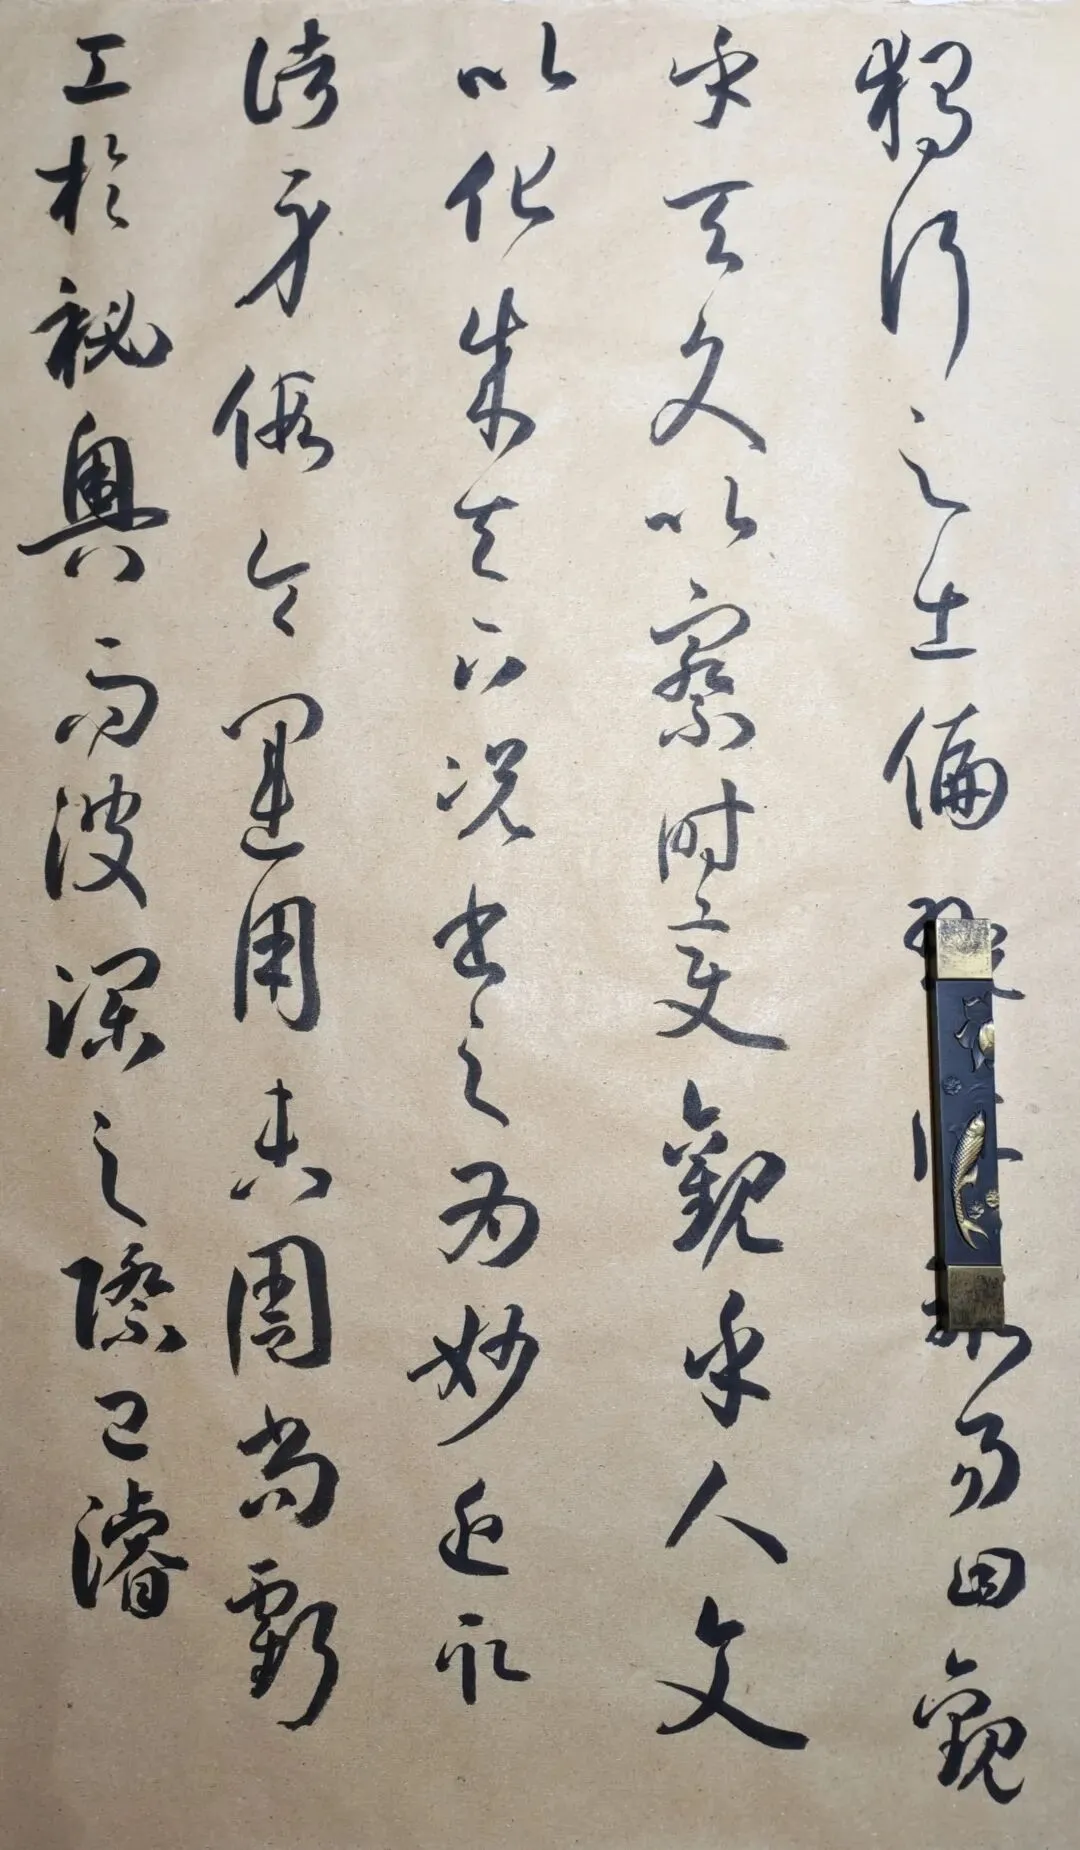 獨行之士偏易曰觀
乎天文以察時變觀乎人文
以化成天下况書之為妙近取
諸身假令運用未周尚虧
工於秘奧而波瀾之際已濬